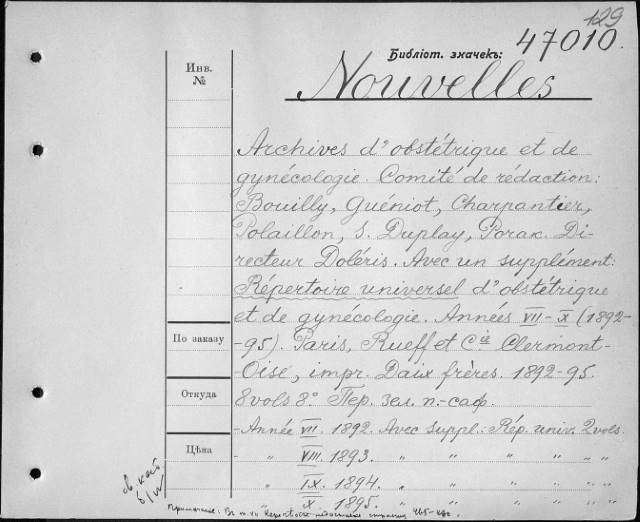 129
Библіот. значекъ: 47010.
Инв.
№
Nouvelles
Archives d'obstétrique et de
gynécologie. Comité de rédaction:
Bouilly, Guéniot, Charpantier,
Polaillon, S. Duplay, Porak. Di-
recteur Doléris. Avec un supplément:
Répertoire universel d'obstétrique
et de gynécologie. Années VII-X (1892-
По заказу
-95). Paris, Rueff et Cie Clermont-
-Oise, impr. Daix frères. 1892-95.
Откуда
8 vols 8° Пер. зел. п.-саф.
Année VII. 1892. Avec suppl.: Rép. univ. 2 vols.
Цѣна
" VIII. 1893. " " " " "
" IX. 1894. " " " " "
" X. 1895. " " " " "
св. кат
Примечание: Въ т. VII Repertoire